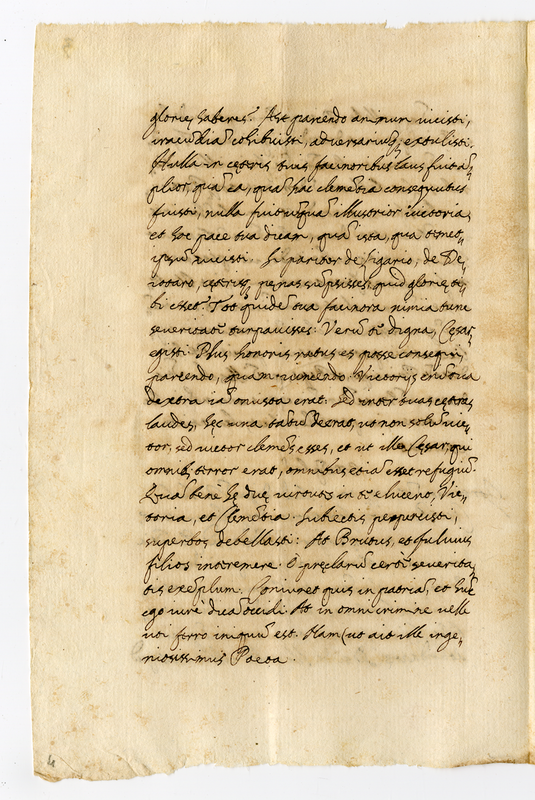 glorię haberes? Ast parcendo animum uicisti,
iracũdiã cohibuisti, aduersariumq; extulisti.
Nulla in cęteris tuis facinoribus laus fuit ã„
plior, quã ea, quã hac clemẽtia consequutus
fuisti, nulla fuit unquã illustrior uictoria,
et hoc pace tua dicam, quã ista, qua temet„
ipsum uicisti. Si pariter de Ligario, de De„
iotaro, cęterisq; pęnas sũpsisses, quid glorię ti„
bi esset? Tot quidẽ tua facinora nimia tunc
seueritate turpauisses: Verũ te digna, Cęsar,
egisti. Plus honoris ratus es posse consequi,
parcendo, quam uincendo. Victorijs enĩ tua
dextra iã onusta erat. Sed inter tuas cęteras
laudes, hęc una tibi deerat, ut non solũ uic„
tor, sed uictor clemẽs esses, et ut ille Cęsar, qui
omnib; terror erat, omnibus etiã esset refugiũ.
Quã benè hę duę uirtutes in te elucent, Vic„
toria, et Clemẽtia. Subiectis pepercisti,
superbos debellasti: At Brutus, et Fuluius
filios interemere. O pręclarũ certè seuerita„
tis exẽplum. Coniuret quis in patriã, et hũc
ego iure dicã occidi. At in omni crimine uelle
uti ferro iniquũ est. Nam (ut ait ille inge„
niosissimus Poeta.